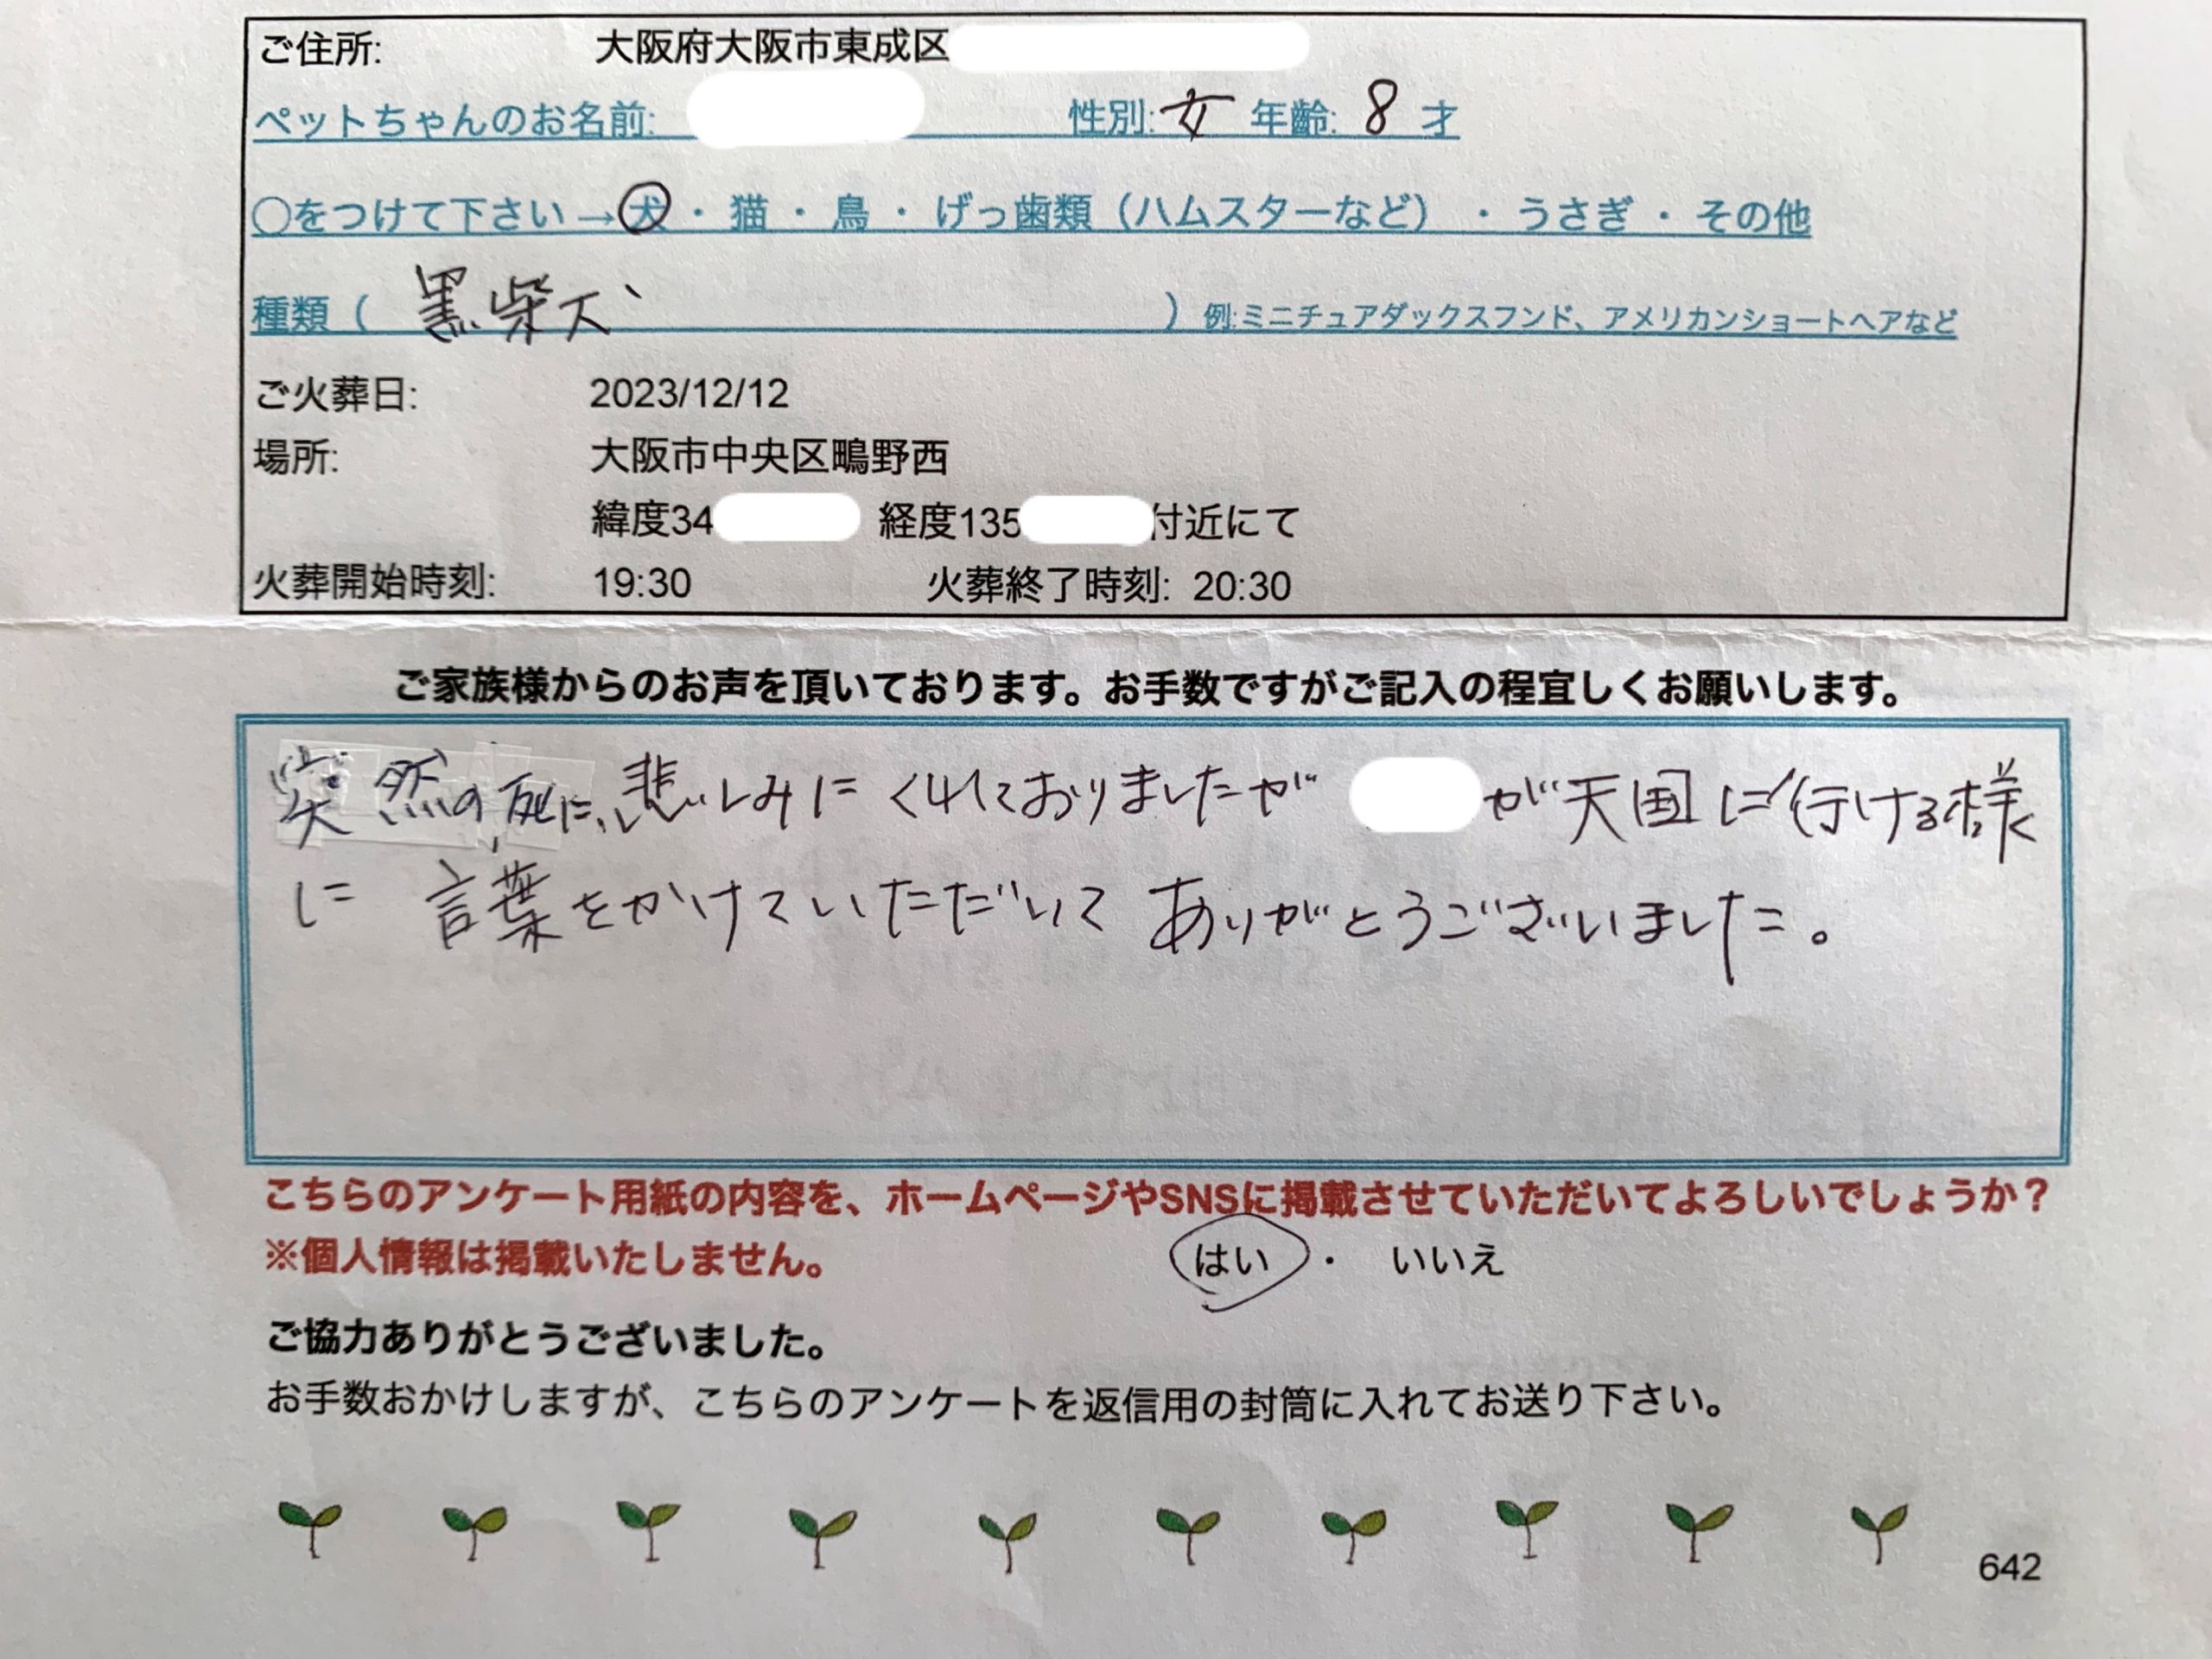 ご住所: 大阪府大阪市東成区
ペットちゃんのお名前: 性別: 女 年齢: 8 才
○をつけて下さい→犬・猫・鳥・げっ歯類（ハムスターなど）・うさぎ・その他
種類（ 黒柴犬 ）例:ミニチュアダックスフンド、アメリカンショートヘアなど
ご火葬日: 2023/12/12
場所: 大阪市中央区鴫野西
緯度34 経度135 付近にて
火葬開始時刻: 19:30 火葬終了時刻: 20:30
ご家族様からのお声を頂いております。お手数ですがご記入の程宜しくお願いします。
突然の死に、悲しみにくれておりましたが が天国に行ける様
に 言葉をかけていただいて ありがとうございました。
こちらのアンケート用紙の内容を、ホームページやSNSに掲載させていただいてよろしいでしょうか？
※個人情報は掲載いたしません。 はい ・ いいえ
ご協力ありがとうございました。
お手数おかけしますが、こちらのアンケートを返信用の封筒に入れてお送り下さい。
642